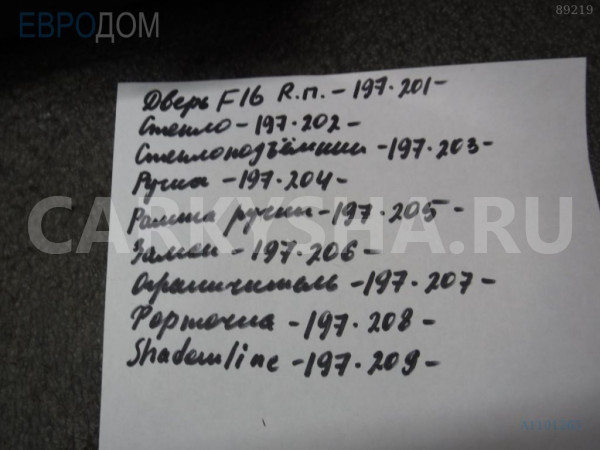 ЕВРОДОМ
89219
Дверь F16 R.п. - 197.201 -
Стекло - 197.202 -
Стеклоподъёмник - 197.203 -
Ручка - 197.204 -
Рамка ручки - 197.205 -
CARKYSHA.RU
Замок - 197.206 -
Ограничитель - 197.207 -
Форточка - 197.208 -
Shadowline - 197.209 -